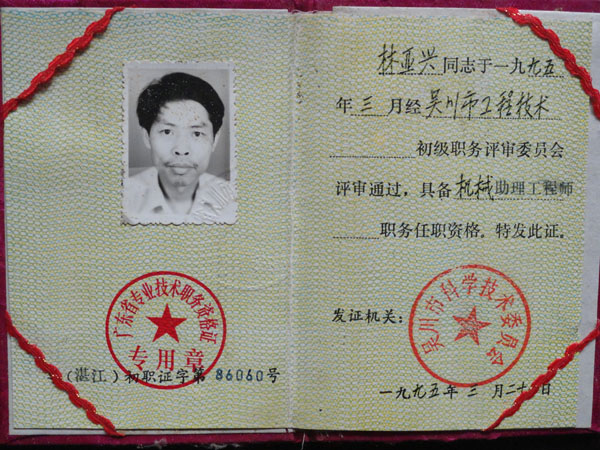 广东省专业技术职务资格证
专用章
(湛江)初职证字第 86060号
林亚兴同志于一九九五
年三月经吴川市工程技术
初级职务评审委员会
评审通过，具备机械助理工程师
职务任职资格。特发此证。
发证机关：
吴川市科学技术委员会
一九九五年三月二十日